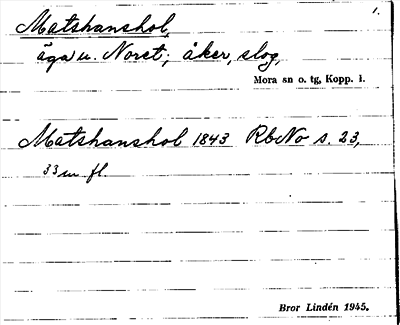 1.
Matshanshol,
äga u. Noret; åker, slog,
Mora sn o. tg, Kopp. l.
Matshanshol 1843 RbNo s. 23,
33 m. fl.
Bror Lindén 1945.